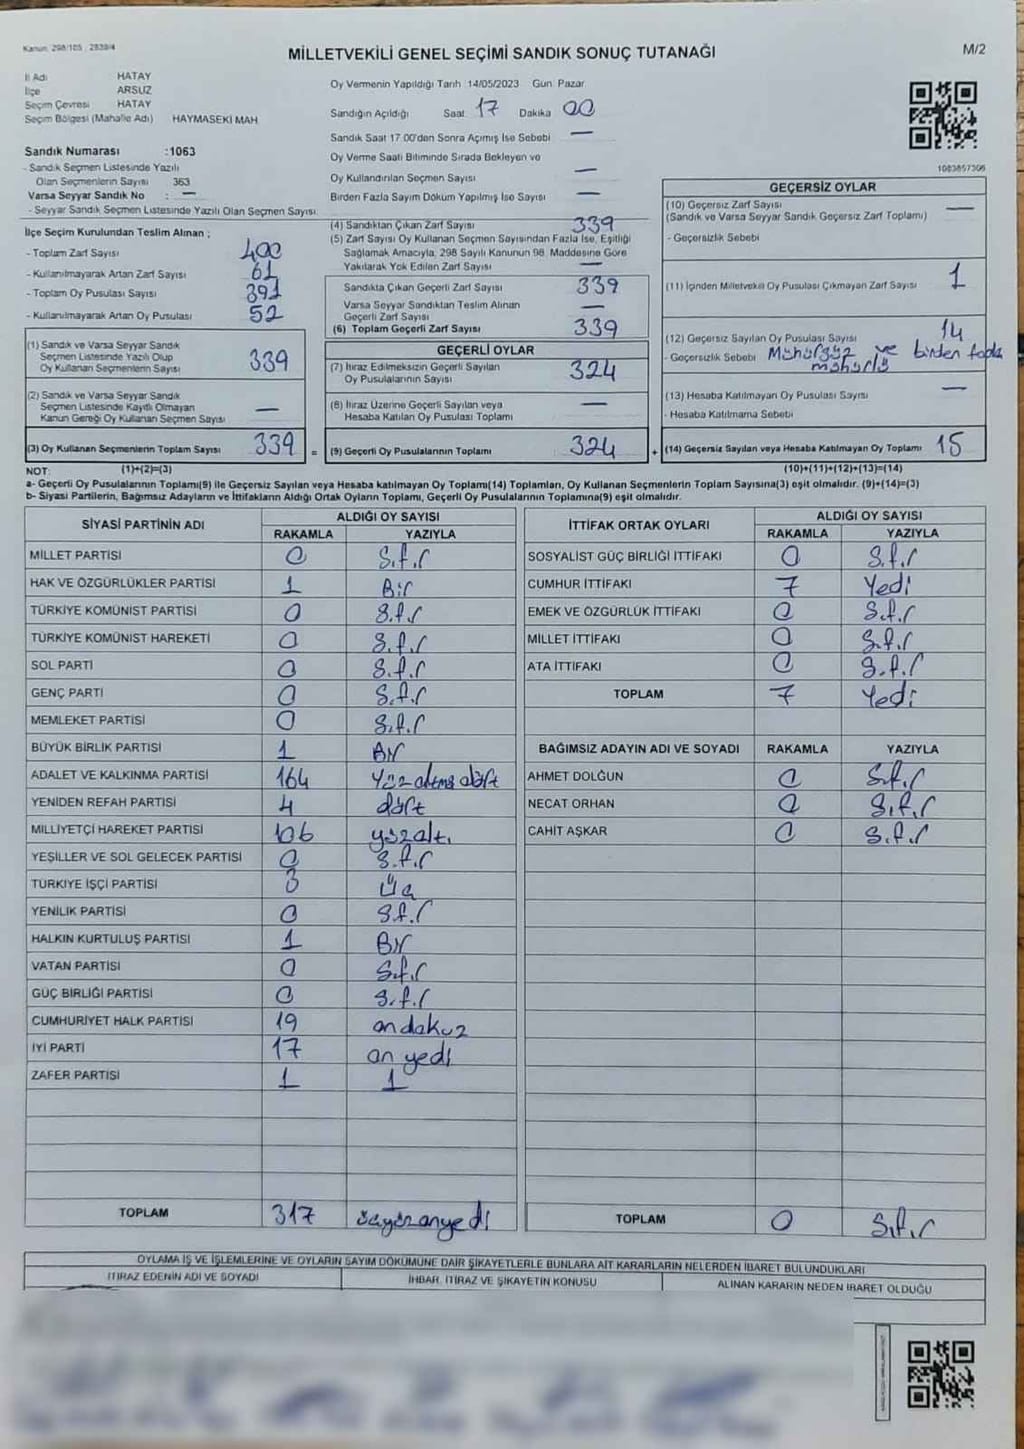 Kanun: 298/105 ; 2839/4
MİLLETVEKİLİ GENEL SEÇİMİ SANDIK SONUÇ TUTANAĞI
M/2
İl Adı HATAY
İlçe ARSUZ
Seçim Çevresi HATAY
Seçim Bölgesi (Mahalle Adı) HAYMASEKİ MAH.
Sandık Numarası :1063
- Sandık Seçmen Listesinde Yazılı
Olan Seçmenlerin Sayısı 363
Varsa Seyyar Sandık No : —
- Seyyar Sandık Seçmen Listesinde Yazılı Olan Seçmen Sayısı:
İlçe Seçim Kurulundan Teslim Alınan ;
- Toplam Zarf Sayısı 400
- Kullanılmayarak Artan Zarf Sayısı 61
- Toplam Oy Pusulası Sayısı 391
- Kullanılmayarak Artan Oy Pusulası 52
(1) Sandık ve Varsa Seyyar Sandık
Seçmen Listesinde Yazılı Olup
Oy Kullanan Seçmenlerin Sayısı 339
(2) Sandık ve Varsa Seyyar Sandık
Seçmen Listesinde Kayıtlı Olmayan
Kanun Gereği Oy Kullanan Seçmen Sayısı —
(3) Oy Kullanan Seçmenlerin Toplam Sayısı 339 =
Oy Vermenin Yapıldığı Tarih 14/05/2023 Gün Pazar
Sandığın Açıldığı Saat 17 Dakika 00
Sandık Saat 17.00'den Sonra Açımış İse Sebebi —
Oy Verme Saati Bitiminde Sırada Bekleyen ve
Oy Kullandırılan Seçmen Sayısı —
Birden Fazla Sayım Döküm Yapılmış İse Sayısı —
(4) Sandıktan Çıkan Zarf Sayısı 339
(5) Zarf Sayısı Oy Kullanan Seçmen Sayısından Fazla İse, Eşitliği
Sağlamak Amacıyla, 298 Sayılı Kanunun 98. Maddesine Göre
Yakılarak Yok Edilen Zarf Sayısı —
Sandıkta Çıkan Geçerli Zarf Sayısı 339
Varsa Seyyar Sandıktan Teslim Alınan
Geçerli Zarf Sayısı —
(6) Toplam Geçerli Zarf Sayısı 339
GEÇERLİ OYLAR
(7) İtiraz Edilmeksizin Geçerli Sayılan
Oy Pusulalarının Sayısı 324
(8) İtiraz Üzerine Geçerli Sayılan veya
Hesaba Katılan Oy Pusulası Toplamı —
(9) Geçerli Oy Pusulalarının Toplamı 324 +
1083857306
GEÇERSİZ OYLAR
(10) Geçersiz Zarf Sayısı —
(Sandık ve Varsa Seyyar Sandık Geçersiz Zarf Toplamı)
- Geçersizlik Sebebi
(11) İçinden Milletvekili Oy Pusulası Çıkmayan Zarf Sayısı 1
(12) Geçersiz Sayılan Oy Pusulası Sayısı 14
- Geçersizlik Sebebi Mühürsüz ve birden fazla
mühürlü
(13) Hesaba Katılmayan Oy Pusulası Sayısı —
- Hesaba Katılmama Sebebi
(14) Geçersiz Sayılan veya Hesaba Katılmayan Oy Toplamı 15
NOT: (1)+(2)=(3) (10)+(11)+(12)+(13)=(14)
a- Geçerli Oy Pusulalarının Toplamı(9) ile Geçersiz Sayılan veya Hesaba katılmayan Oy Toplamı(14) Toplamları, Oy Kullanan Seçmenlerin Toplam Sayısına(3) eşit olmalıdır. (9)+(14)=(3)
b- Siyasi Partilerin, Bağımsız Adayların ve İttifakların Aldığı Ortak Oyların Toplamı, Geçerli Oy Pusulalarının Toplamına(9) eşit olmalıdır.
SİYASİ PARTİNİN ADI ALDIĞI OY SAYISI
RAKAMLA YAZIYLA
MİLLET PARTİSİ 0 Sıfır
HAK VE ÖZGÜRLÜKLER PARTİSİ 1 Bir
TÜRKİYE KOMÜNİST PARTİSİ 0 Sıfır
TÜRKİYE KOMÜNİST HAREKETİ 0 Sıfır
SOL PARTİ 0 Sıfır
GENÇ PARTİ 0 Sıfır
MEMLEKET PARTİSİ 0 Sıfır
BÜYÜK BİRLİK PARTİSİ 1 Bir
ADALET VE KALKINMA PARTİSİ 164 Yüz altmış dört
YENİDEN REFAH PARTİSİ 4 dört
MİLLİYETÇİ HAREKET PARTİSİ 106 yüzaltı
YEŞİLLER VE SOL GELECEK PARTİSİ 0 Sıfır
TÜRKİYE İŞÇİ PARTİSİ 3 Üç
YENİLİK PARTİSİ 0 Sıfır
HALKIN KURTULUŞ PARTİSİ 1 Bir
VATAN PARTİSİ 0 Sıfır
GÜÇ BİRLİĞİ PARTİSİ 0 Sıfır
CUMHURİYET HALK PARTİSİ 19 ondokuz
İYİ PARTİ 17 on yedi
ZAFER PARTİSİ 1 1
TOPLAM 317 üçyüzonyedi
İTTİFAK ORTAK OYLARI ALDIĞI OY SAYISI
RAKAMLA YAZIYLA
SOSYALİST GÜÇ BİRLİĞİ İTTİFAKI 0 Sıfır
CUMHUR İTTİFAKI 7 Yedi
EMEK VE ÖZGÜRLÜK İTTİFAKI 0 Sıfır
MİLLET İTTİFAKI 0 Sıfır
ATA İTTİFAKI 0 Sıfır
TOPLAM 7 Yedi
BAĞIMSIZ ADAYIN ADI VE SOYADI RAKAMLA YAZIYLA
AHMET DOLĞUN 0 Sıfır
NECAT ORHAN 0 Sıfır
CAHİT AŞKAR 0 Sıfır
TOPLAM 0 Sıfır
OYLAMA İŞ VE İŞLEMLERİNE VE OYLARIN SAYIM DÖKÜMÜNE DAİR ŞİKAYETLERLE BUNLARA AİT KARARLARIN NELERDEN İBARET BULUNDUKLARI
İTİRAZ EDENİN ADI VE SOYADI İHBAR, İTİRAZ VE ŞİKAYETİN KONUSU ALINAN KARARIN NEDEN İBARET OLDUĞU